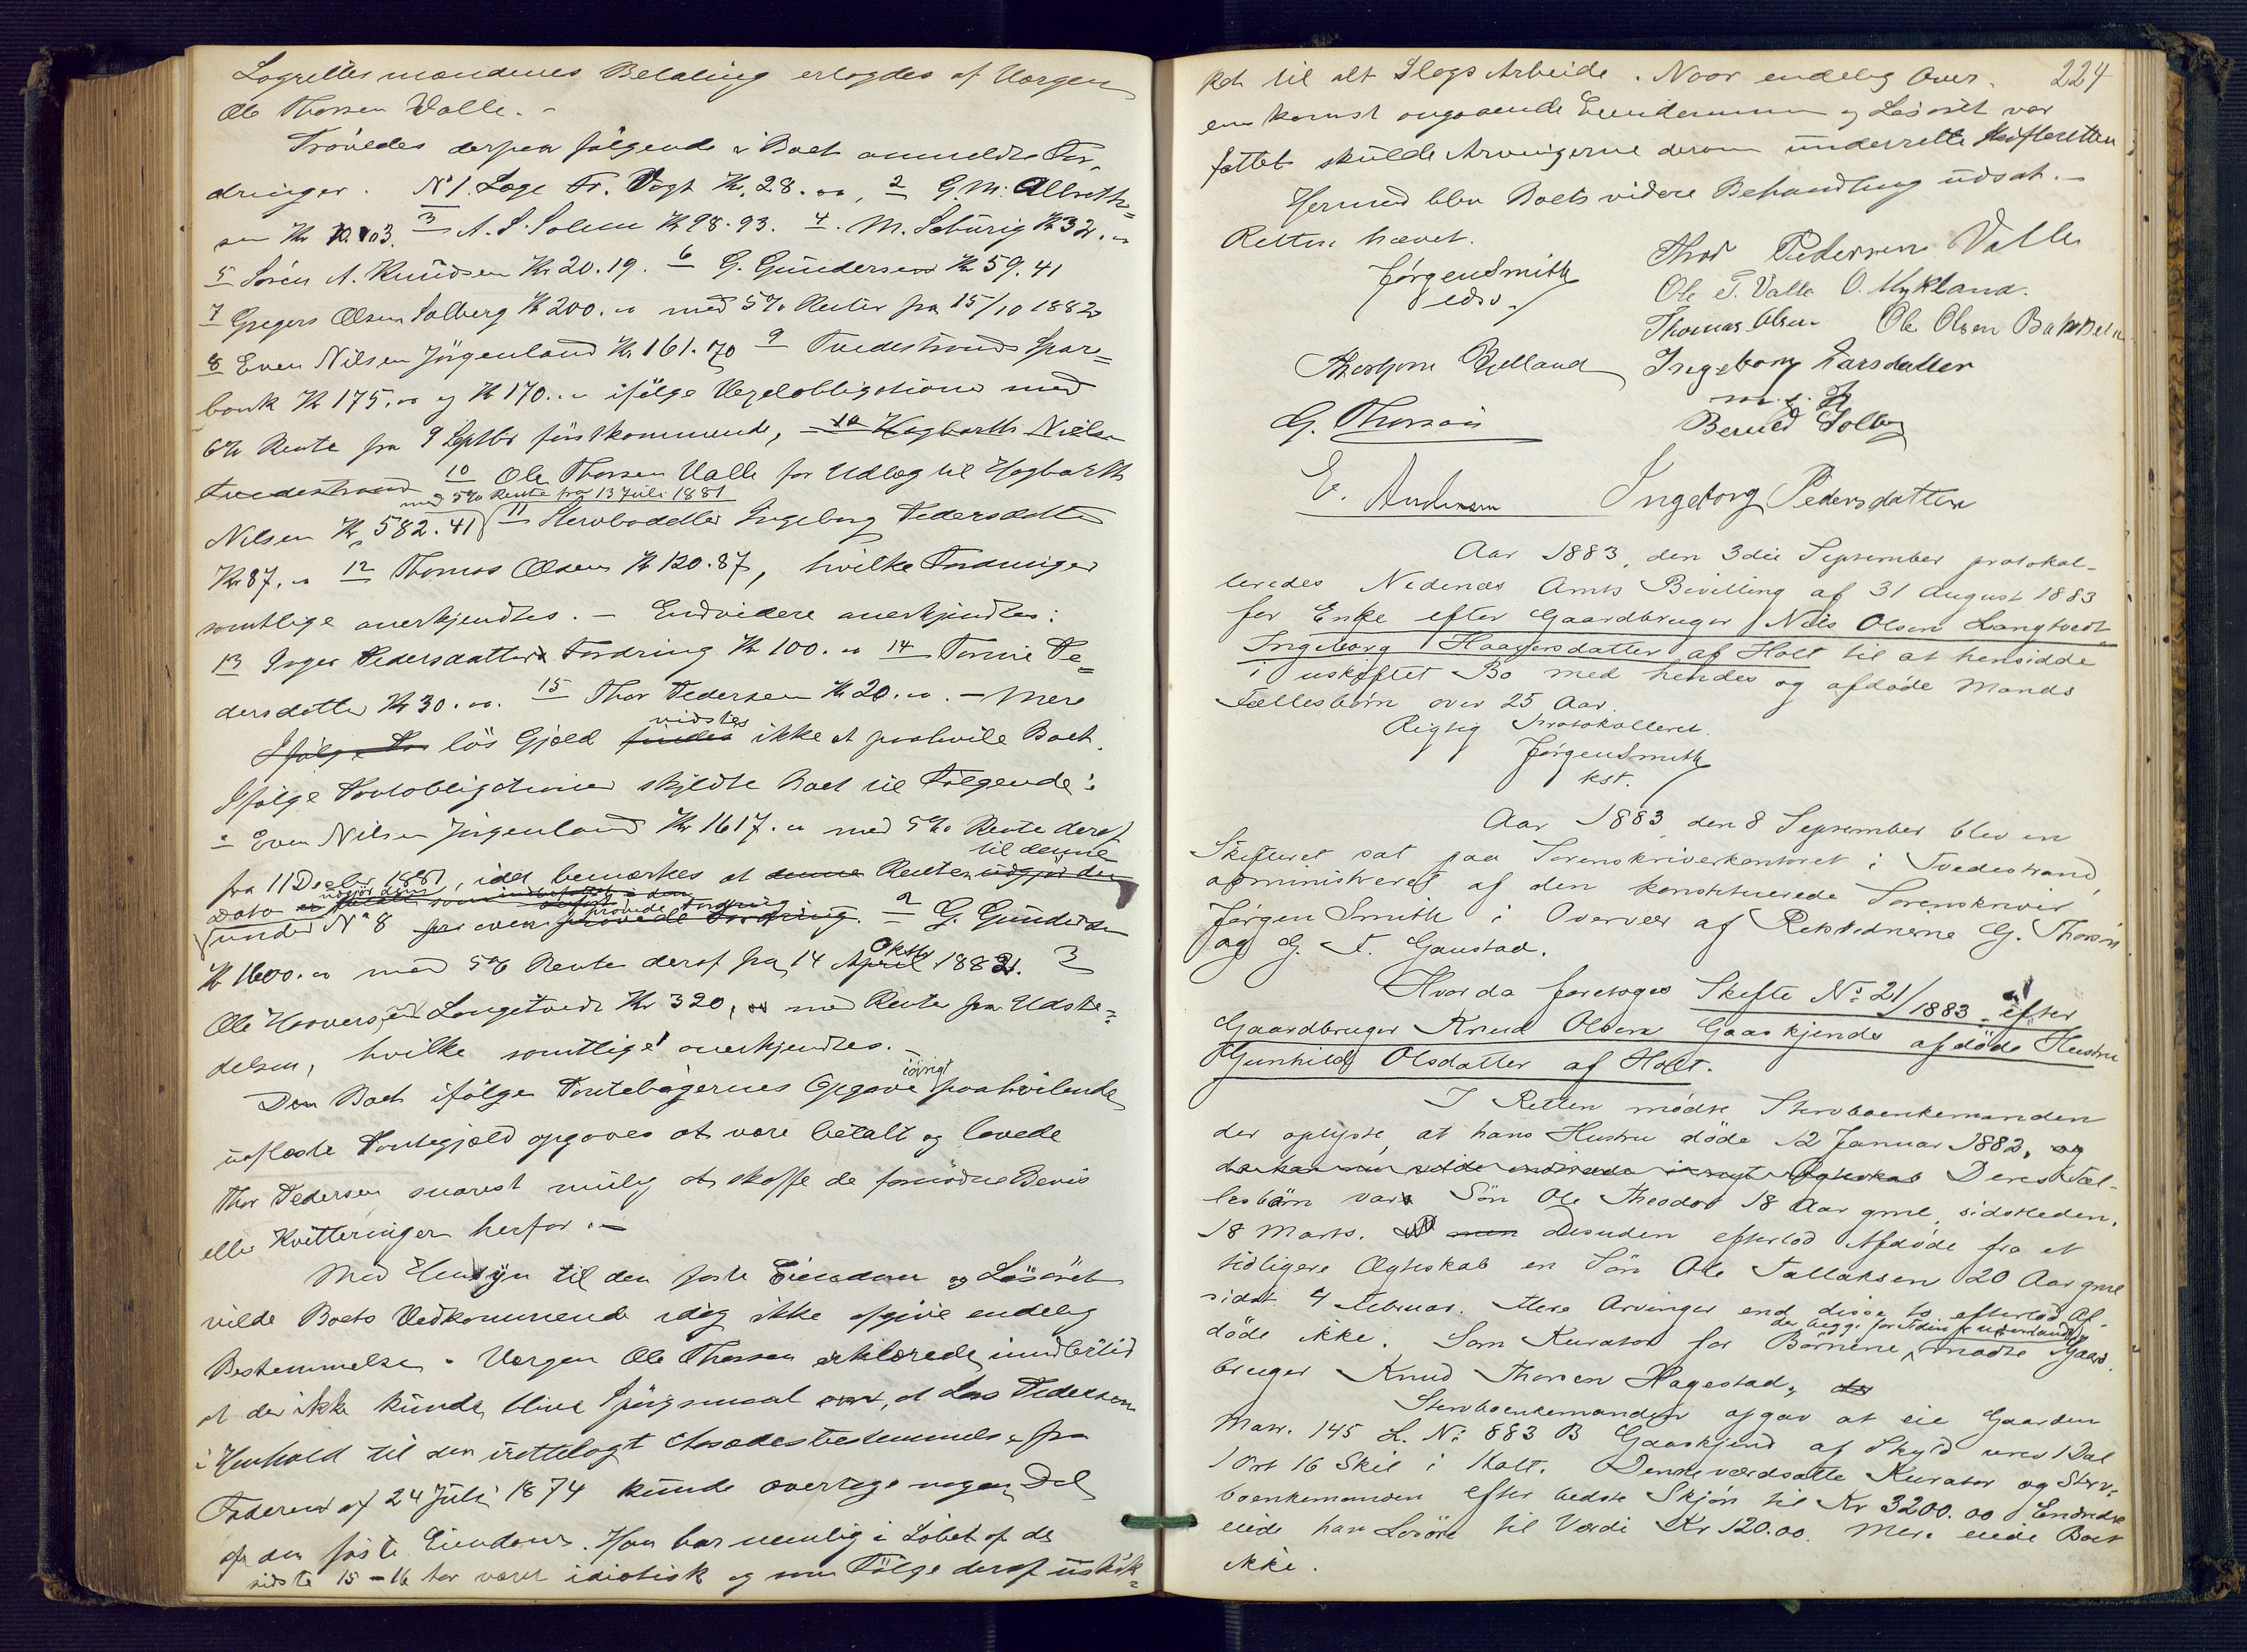 Lagrettesmændenes Betaling erlagdes af Værgen
Ole Thorsen Valle. -
Prövedes derpaa fölgende i Boet anmeldte For-
dringer. No 1. Læge Fr. Vogt Kr. 28. 00, 2 G. M. Albreth-
sen Kr 10.03. 3 A. S. Solem Kr 98.93. 4. M. Seburig Kr 32. 00
5 Sörén A. Knudsen Kr 20.19. 6 G. Gundersen Kr 59.41
7 Gregers Olsen Solberg Kr 200. 00 med 5% Renter fra 15/10 1882
8 Even Nilsen Jörgenland Kr. 161.70 9 Tvedestrands Spare-
bank Kr 175. 00 og Kr 170. 00 ifölge Vexelobligationer med
6% Rente fra 9 Septbr förstkommende, 10 Hagbarth Nielsen
Tvedestrand 10 Ole Thorsen Valle for Udlæg til Hagbarth
med 5% Rente fra 13 Juli 1881
Nilsen Kr 582.41 11 Stervboddtter Ingeborg Pedersdatter
Kr 87. 00 12 Thomas Olsen Kr 120.87, hvilke Fordringer
samtlige anerkjendtes. - Endvidere anerkjendtes:
13 Inger Pedersdatters Fordring Kr 100. 00 14 Tomine Pe-
dersdatter Kr 30. 00. 15 Thor Pedersen Kr 20. 00. - Mere
vidstes
Ifölge Pan lös Gjæld findes ikke at paahvile Boet.
Ifölge Panteobligationer skyldte Boet til Fölgende:
1 Even Nilsen Jörgenland Kr 1617. 00 med 5% Rente deraf
til denne
fra 11 Decbr 1881, idet bemærkes at denne Renter udgjör den
Dato udgjör den
under No 8 prövede Fordring. 2 G. Gundersen
Oktb
Kr 1600. 00 med 5% Rente deraf fra 14 April 1882. 3
Ole Haaversen Langetvedt Kr 320, 00 med Rente fra Udste-
delsen, hvilke samtlige anerkjendtes. -
iövrigt
Den Boet ifölge Pantebögernes Opgave paahvilende
uaflæste Pantegjæld opgaves at være betalt og lovede
Thor Pedersen snarest mulig at skaffe de fornödne Bevis
eller Kvitteringer herfor. -
Med Hensyn til den faste Eiendom og Lösöret
vilde Boets Vedkommende idag ikke afgive endelig
Bestemmelse. Værgen Ole Thorsen erklærede imidlertid
at der ikke kunde blive Spörgsmaal om, at Lars Pedersen
i Henhold til den irettelagt Aasædesbestemmelse fra
Faderen af 24 Juli 1874 kunde overtage nogen Del
af den faste Eiendom. Han har nemlig i Löbet af de
sidste 15-16 Aar været idiotisk og som Fölge deraf uskik-
224
ket til alt Slags Arbeide. Naar endelig Over-
enskomst angaaende Eiendommen og Lösöret var
fattet skulde Arvingerne derom underrette Skifteretten
Hermed blev Boets videre Behandling udsat. -
Retten hævet.
Jörgen Smith
edsv.
Thor Pedersen Valle
Ole T. Valle O. Mykland.
Thomas Olsen Ole Olsen
Thorbjørn Gjelland Ingeborg Larsdatter
m. p. P
G. Thorsen Berned Solberg
E. Andersen Ingeborg Pedersdatter
Aar 1883, den 3die September protokol-
leredes Nedenæs Amts Bevilling af 31 August 1883
for Enke efter Gaardbruger Nils Olsen Langtvedt
Ingeborg Haaversdatter af Holt til at hensidde
i uskiftet Bo med hendes og afdöde Mands
Fællesbörn over 25 Aar.
Rigtig Protokolleret.
Jörgen Smith
kst.
Aar 1883 den 8 September blev en
Skifteret sat paa Sorenskriverkontoret i Tvedestrand,
administreret af den konstituerede Sorenskriver
Jörgen Smith i Overvær af Retsvidnerne G. Thorsen
og G. F. Gaustad.
Hvor da foretoges Skifte No. 21/1883 efter
Gaardbruger Knud Olsen Gaaskjends afdöde Hustru
Gunhild Olsdatter af Holt.
I Retten mödte Stervboenkemanden
der oplyste, at hans Hustru döde 12 Januar 1882, og
Deres Fæl-
lesbörn var Sön Ole Theodor 18 Aar gml. sidstleden.
18 Marts. men desuden efterlod Afdöde fra et
tidligere Ægteskab en Sön Ole Tallaksen 20 Aar gml
sidst. 4 Februar. Flere Arvinger end disse to efterlod Af-
der begge for Tiden er udenlands,
döde ikke. Som Kurator for Börnene, mödte Gaard-
bruger Knud Thorsen Hagestad, der
Stervboenkemanden opgav at eie Gaarden
Matr. 145 L. No. 883 B Gaaskjend af Skyld urev 1 Dal
1 Ort 16 Skil i Holt. Denne værdsatte Kurator og Sterv-
boenkemanden efter bedste Skjön til Kr 3200.00 Endvidre
eiede han Lösöre til Værdi Kr 120.00. Mere eiede Boet
ikke.